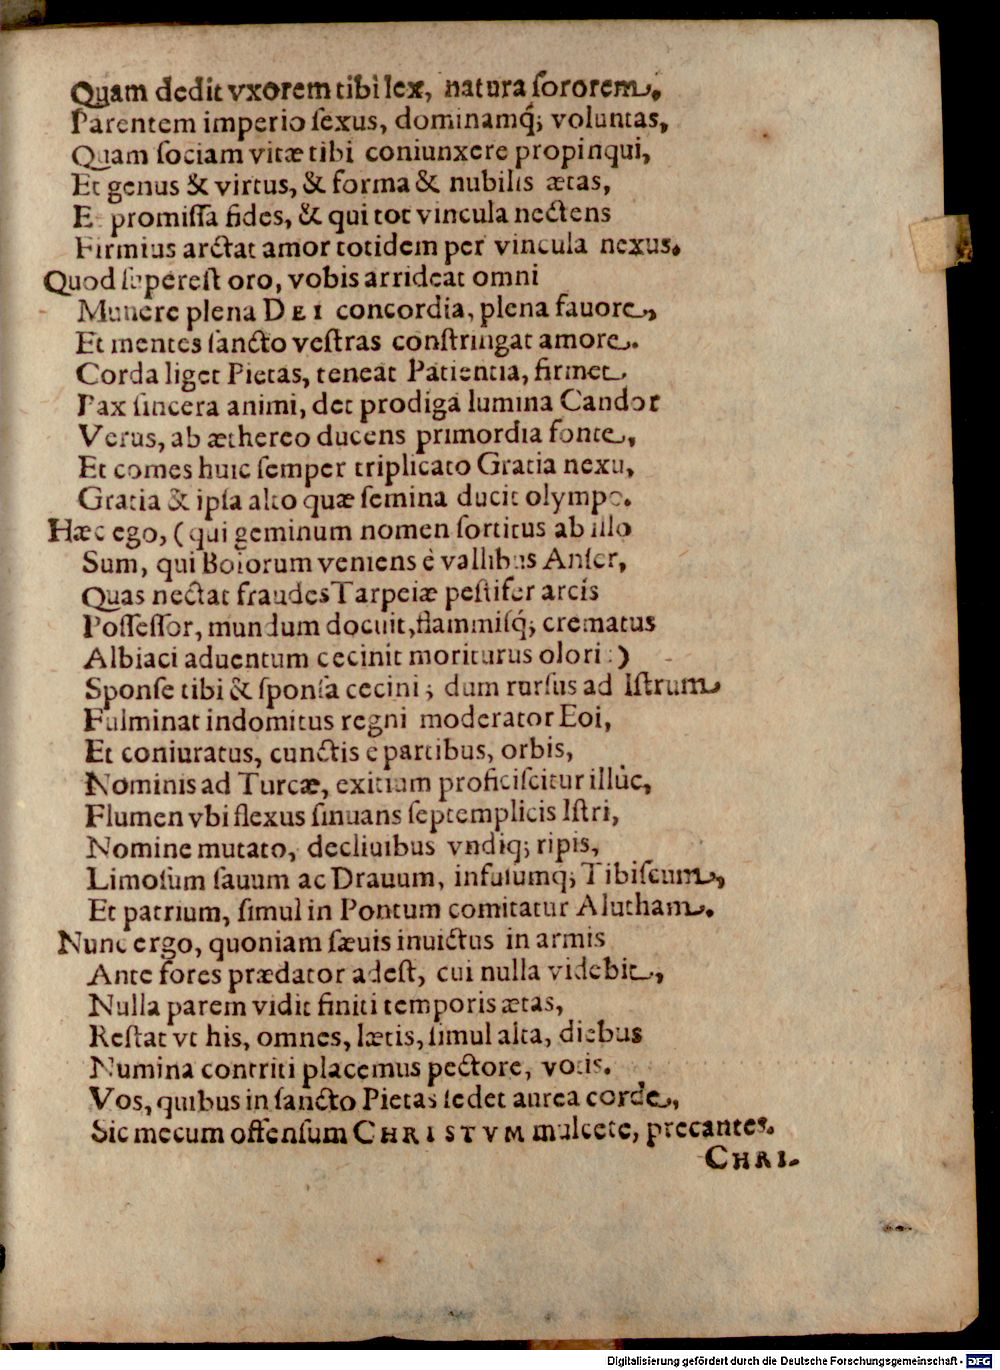 Quam dedit vxorem tibi lex, natura ſororem,
Parentem imperio ſexus, dominamq́; voluntas,
Quam ſociam vitæ tibi coniunxere propinqui,
Et genus & virtus, & forma & nubilis ætas,
Et promiſſa fides, & qui tot vincula nectens
Firmius arctat amor totidem per vincula nexus.
Quod ſupereſt oro, vobis arrideat omni
Munere plena DEI concordia, plena fauore,
Et mentes ſancto veſtras conſtringat amore.
Corda liget Pietas, teneat Patientia, firmet
Pax ſincera animi, det prodiga lumina Candor
Verus, ab æthereo ducens primordia fonte,
Et comes huic ſemper triplicato Gratia nexu,
Gratia & ipſa alto quæ ſemina ducit olympo.
Hæc ego, (qui geminum nomen ſortitus ab illo
Sum, qui Boiorum veniens è vallibus Anſer,
Quas nectat fraudes Tarpeiæ peſtifer arcis
Poſſeſſor, mundum docuit, flammiſq́; crematus
Albiaci aduentum cecinit moriturus olori:)
Sponſe tibi & ſponſa cecini; dum rurſus ad Iſtrum
Fulminat indomitus regni moderator Eoi,
Et coniuratus, cunctis e partibus, orbis,
Nominis ad Turcæ, exitium proficiſcitur illúc,
Flumen vbi flexus ſinuans ſeptemplicis Iſtri,
Nomine mutato, decliuibus vndiq; ripis,
Limoſum ſauum ac Drauum, infuſumq; Tibiſcum,
Et patrium, ſimul in Pontum comitatur Alutham.
Nunc ergo, quoniam ſæuis inuictus in armis
Ante fores prædator adeſt, cui nulla videbit,
Nulla parem vidit finiti temporis ætas,
Reſtat vt his, omnes, lætis, ſimul alta, diebus
Numina contriti placemus pectore, votis.
Vos, quibus in ſancto Pietas ſedet aurea corde,
Sic mecum offenſum CHRISTVM mulcete, precantes.
CHRI-
Digitalisierung gefördert durch die Deutsche Forschungsgemeinschaft - DFG